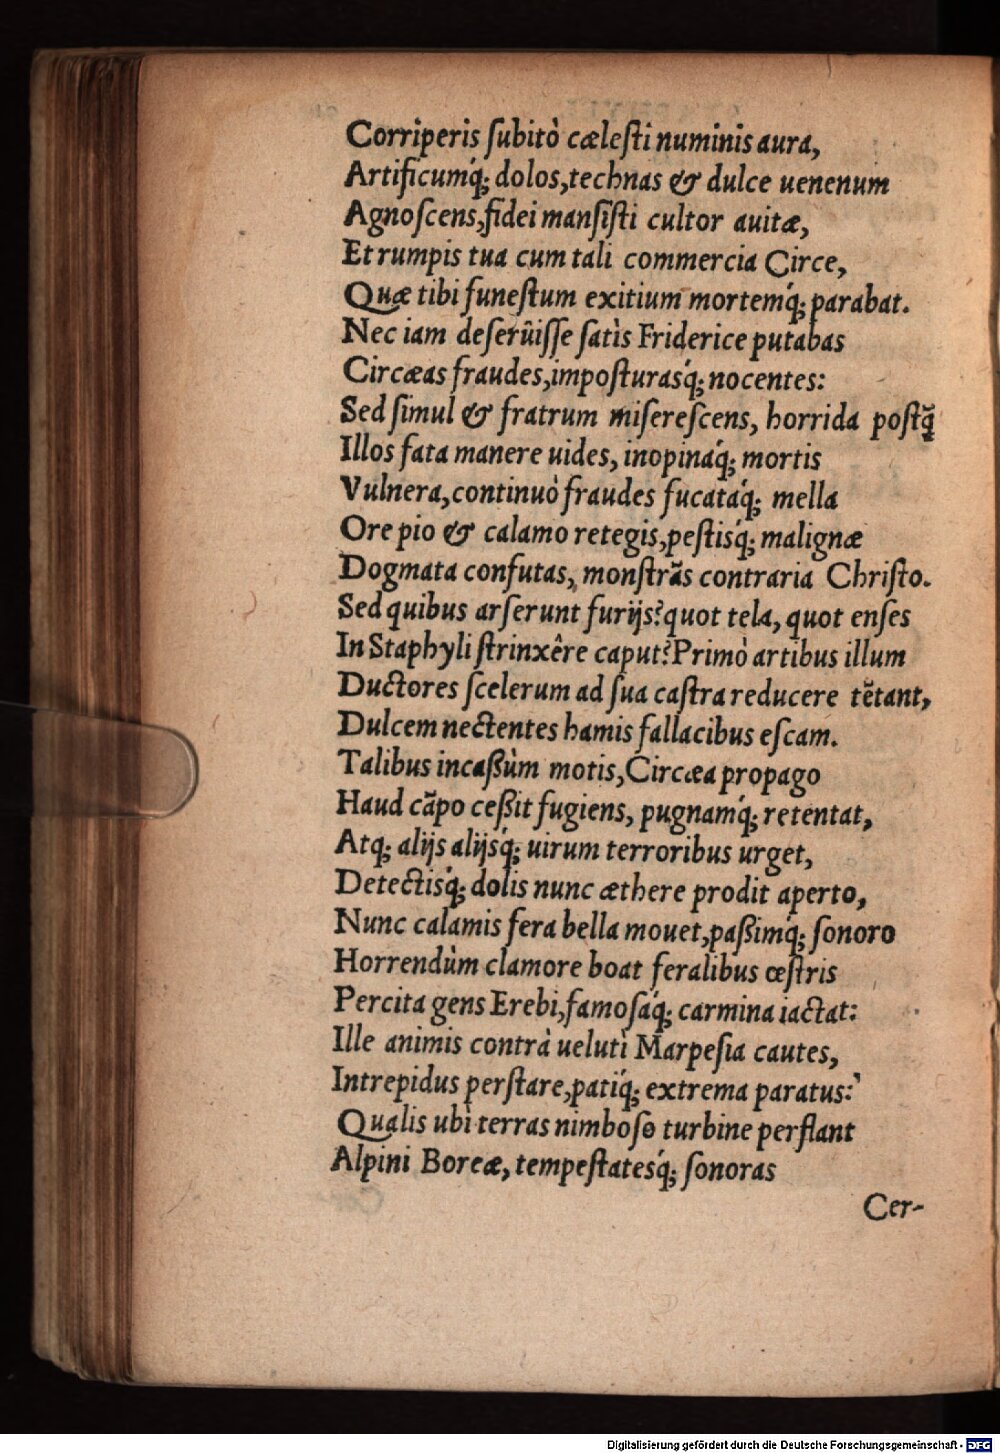 Corriperis ſubitò cæleſti numinis aura,
Artificumq́; dolos, technas & dulce uenenum
Agnoſcens, fidei manſiſti cultor auitæ,
Et rumpis tua cum tali commercia Circe,
Quæ tibi funeſtum exitium mortemq́; parabat.
Nec iam deſerûiſſe ſatìs Friderice putabas
Circæas fraudes, impoſturasq́; nocentes:
Sed ſimul & fratrum miſereſcens, horrida poſtq̃
Illos fata manere uides, inopinaq́; mortis
Vulnera, continuò fraudes fucataq́; mella
Ore pio & calamo retegis, peſtisq́; malignæ
Dogmata confutas, monſtrãs contraria Chriſto.
Sed quibus arſerunt furijs? quot tela, quot enſes
In Staphyli ſtrinxêre caput? Primò artibus illum
Ductores ſcelerum ad ſua caſtra reducere tẽtant,
Dulcem nectentes hamis fallacibus eſcam.
Talibus incaßùm motis, Circæa propago
Haud cãpo ceßit fugiens, pugnamq́; retentat,
Atq; alijs alijsq́; uirum terroribus urget,
Detectisq́; dolis nunc æthere prodit aperto,
Nunc calamis fera bella mouet, paßimq́; ſonoro
Horrendùm clamore boat feralibus œſtris
Percita gens Erebi, famoſaq́; carmina iactat:
Ille animis contrà ueluti Marpeſia cautes,
Intrepidus perſtare, patiq́; extrema paratus:
Qualis ubi terras nimboſo turbine perflant
Alpini Boreæ, tempeſtatesq́; ſonoras
Cer-
Digitalisierung gefördert durch die Deutsche Forschungsgemeinschaft - DFG